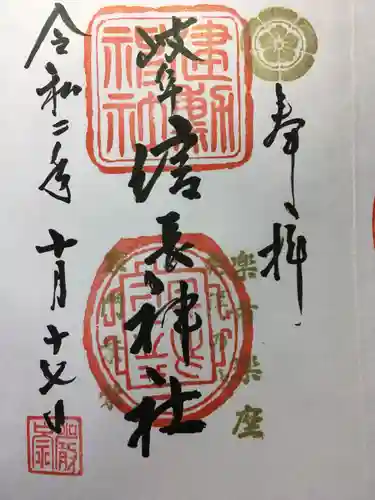 奉拝
岐阜信長神社
建勲神社
楽市楽座
令和二年
十月十七日